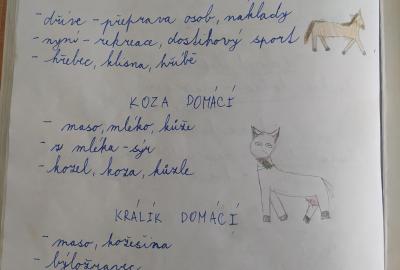 - dříve - přeprava osob, náklady
- nyní - rekreace, dostihový sport
- hřebec, klisna, hříbě
KOZA DOMÁCÍ
- maso, mléko, kůže
- z mléka - sýr
- kozel, koza, kůzle
KRÁLÍK DOMÁCÍ
- maso, kožešina
- býložravec